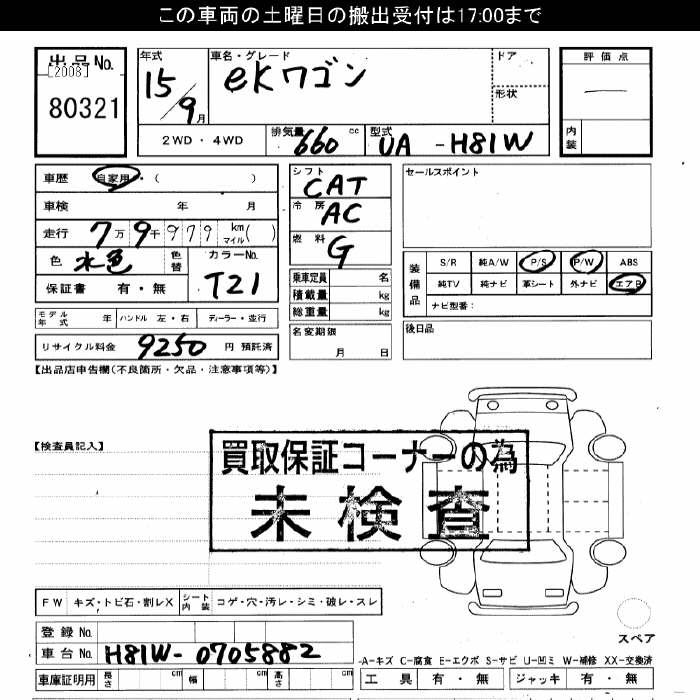 この車両の土曜日の搬出受付は17:00まで
出品No.
[2008]
80321
年式
15/9月
車名・グレード
ekワゴン
ドア
形状
評価点
内装
2WD・4WD
排気量 660 cc
型式 UA-H81W
車歴 自家用・( )
車検 年 月
走行 7万9千979 km マイル( )
色 水色 色替
カラーNo. T21
保証書 有・無
シフト CAT
冷房 AC
燃料 G
乗車定員 名
積載量 kg
総重量 kg
名変期限
月 日
セールスポイント
装備品
S/R 純A/W P/S P/W ABS
純TV 純ナビ 革シート 外ナビ エアB
ナビ型番:
後日品
モデル年式 年 ハンドル 左・右 ディーラー・並行
リサイクル料金 9250 円 預託済
【出品店申告欄(不良箇所・欠品・注意事項等)】
【検査員記入】
買取保証コーナーの為
未検査
FW キズ・トビ石・割レX シート内装 コゲ・穴・汚レ・シミ・破レ・スレ
登録No.
車台No. H81W-0705882
車庫証明用 長さ cm 幅 cm 高さ cm
スペア
-A-キズ C-腐食 E-エクボ S-サビ U-凹ミ W-補修 XX-交換済
工具 有・無 ジャッキ 有・無